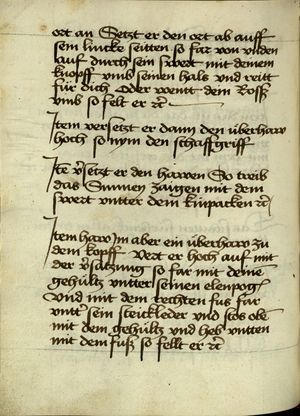 ort an Setzt er den ort ab auff
sein lincke seitten so far von vnden
auf durch sein swert mit deinem
knopff vmb seinen hals vnd reitt
für dich Oder wennt dem Roß
vmb so felt er ꝛc
Item versetzt er dann den überhaw
hoch so nym den schaffgriff
Ite v̉setzt er den hawen So treib
das Sunnen zaigen mit dem
swert vntter dem kinparken ꝛc
Item haw Im aber ein überhaw zu
dem kopff Vert er hoch auf mit
der v̉satzung so far mit deinē
gehültz vntter seinen elenpogē
Vnd mit dem rechten fus far
vntt̉ sein steickleder vnd stos obē
mit dem gehültz vnd heb vntten
mit dem fuß so fellt er ꝛc